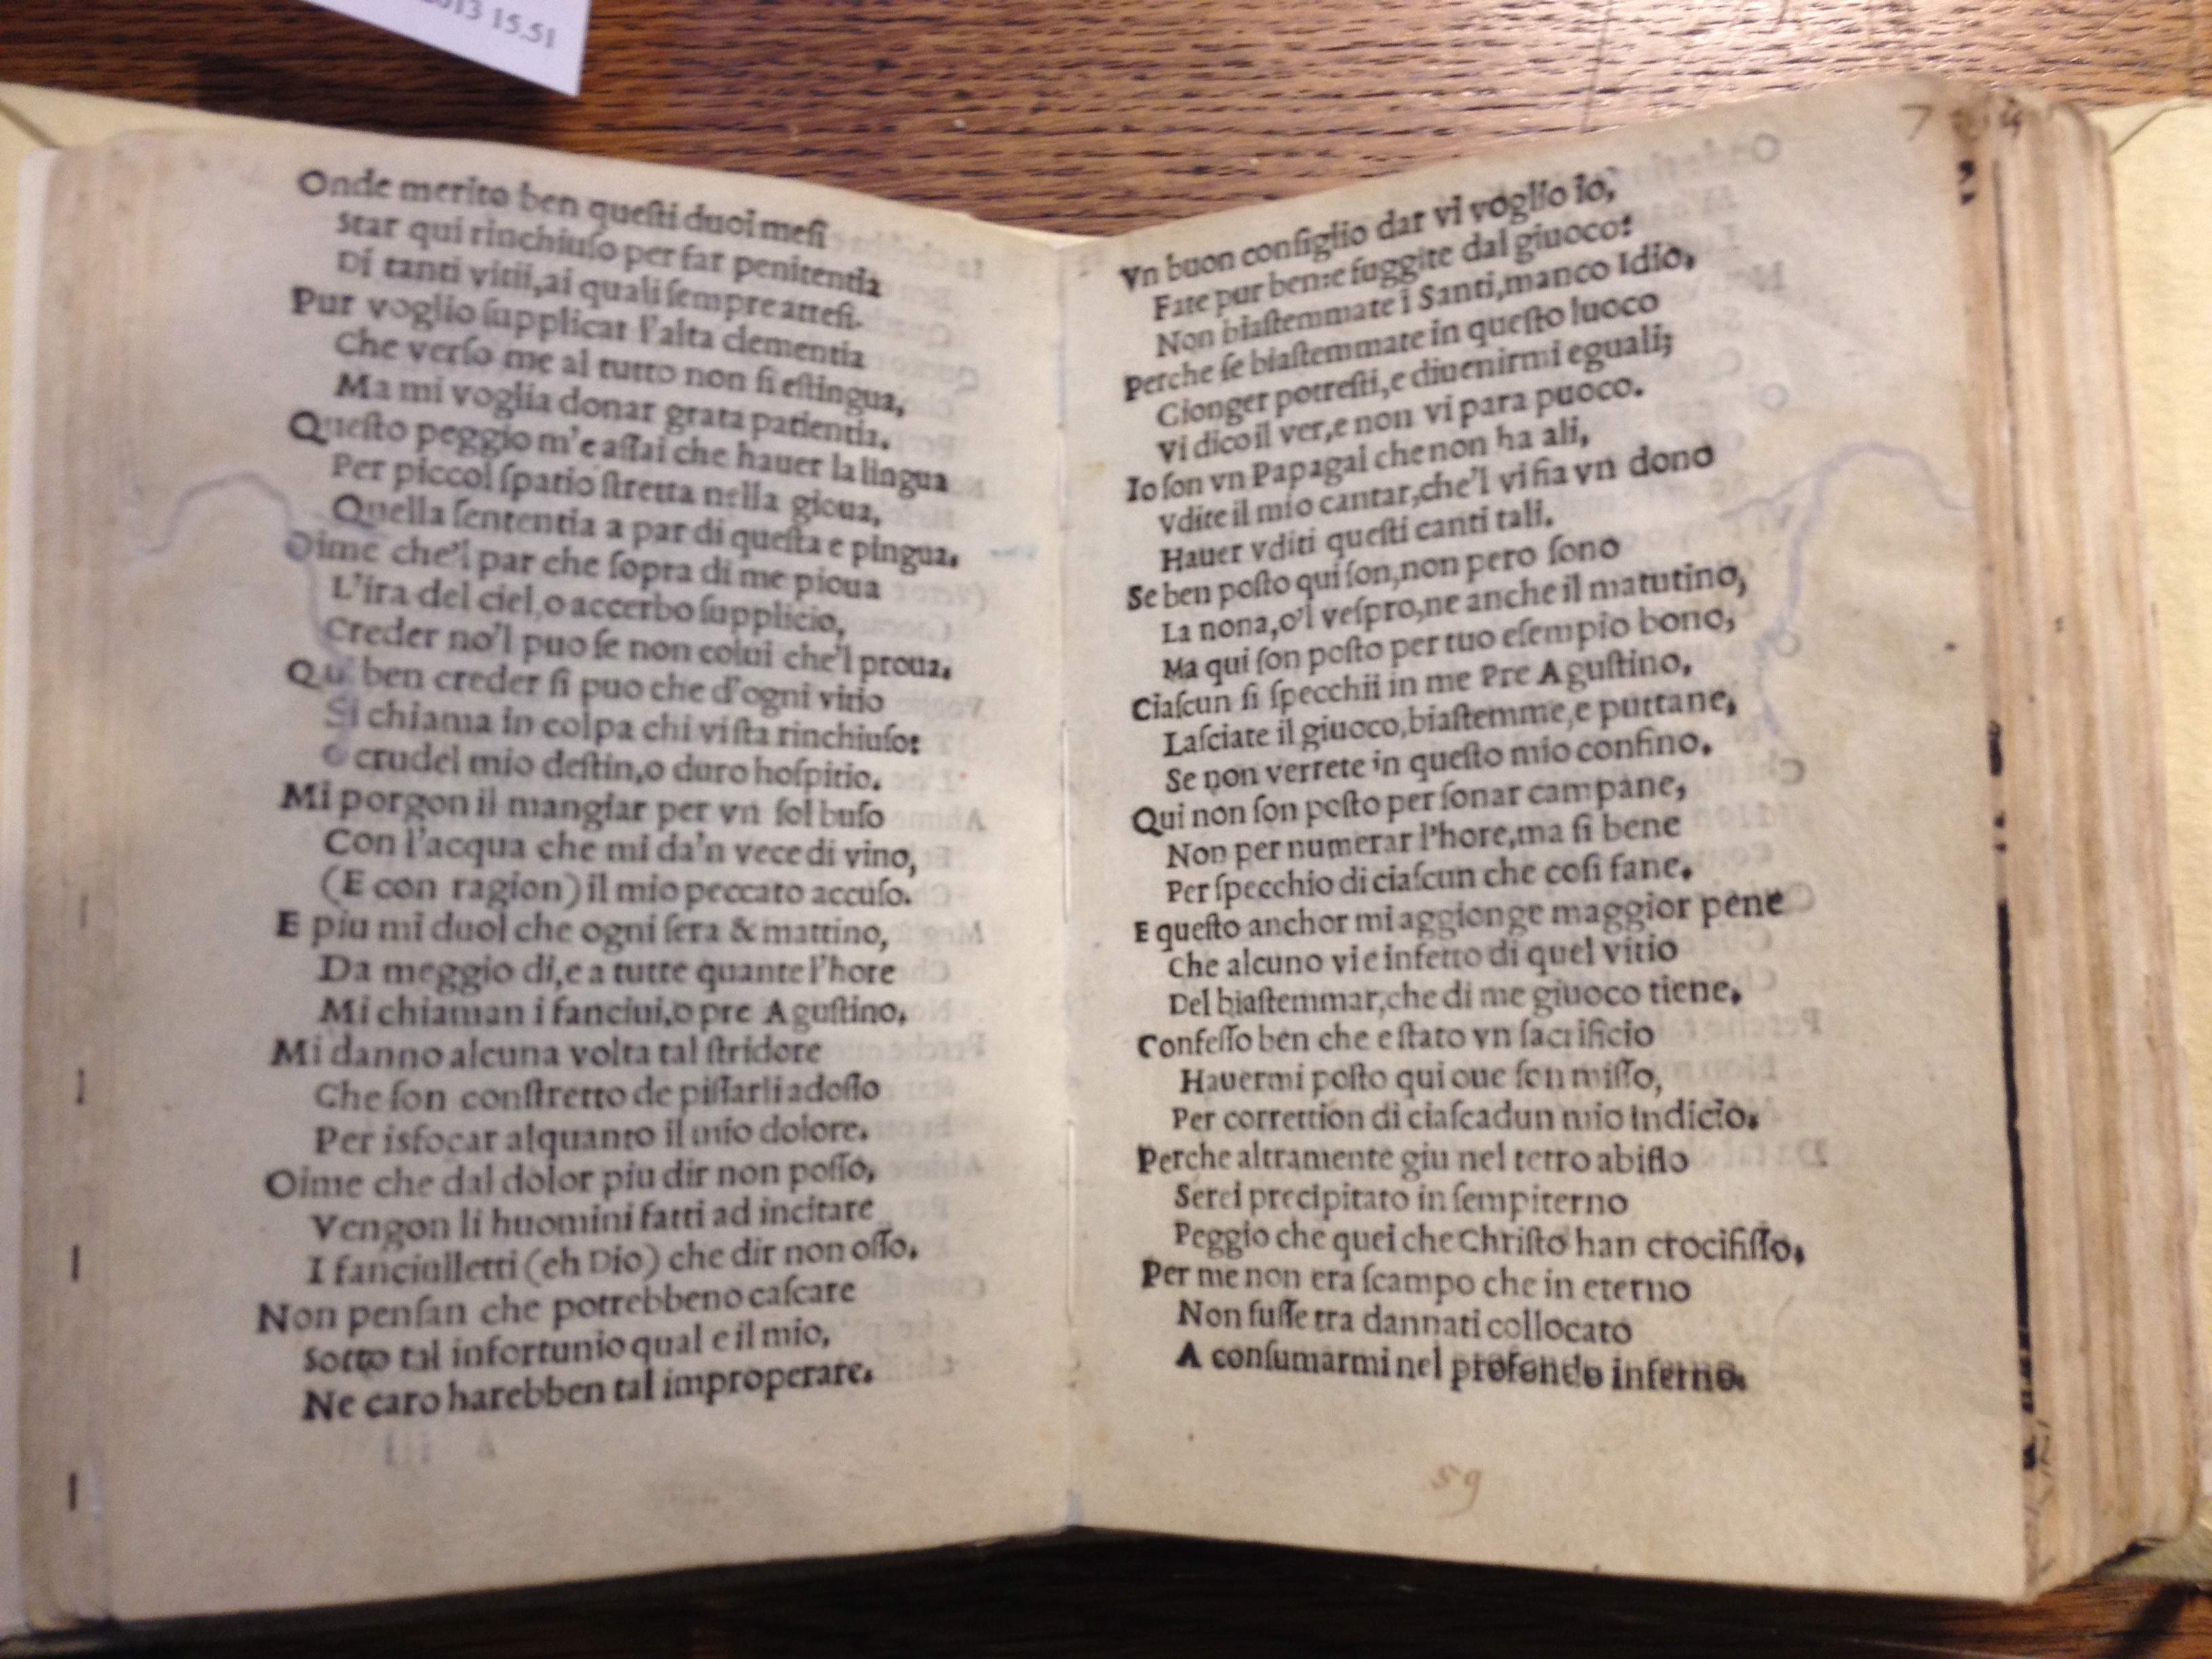 2013 15.51
Onde merito ben queſti duoi meſi
Star qui rinchiuſo per far penitentia
Di tanti vitii,ai quali ſempre atteſi.
Pur voglio ſupplicar l'alta clementia
Che verſo me al tutto non ſi eſtingua,
Ma mi voglia donar grata patientia.
Queſto peggio m'e aſſai che hauer la lingua
Per piccol ſpatio ſtretta nella gioua,
Quella ſententia a par di queſta e pingua.
Oime che'l par che ſopra di me pioua
L'ira del ciel,o accerbo ſupplicio,
Creder no'l puo ſe non colui che'l proua.
Qui ben creder ſi puo che d'ogni vitio
Si chiama in colpa chi vi ſta rinchiuſo:
o crudel mio deſtin,o duro hoſpitio.
Mi porgon il mangiar per vn ſol buſo
Con l'acqua che mi da'n vece di vino,
(E con ragion) il mio peccato accuſo.
E piu mi duol che ogni ſera & mattino,
Da meggio di,e a tutte quante l'hore
Mi chiaman i fanciui,o pre Aguſtino.
Mi danno alcuna volta tal ſtridore
Che ſon conſtretto de piſſarli adoſſo
Per isfocar alquanto il mio dolore.
Oime che dal dolor piu dir non poſſo,
Vengon li huomini fatti ad incitare
I fanciulletti (eh Dio) che dir non oſſo.
Non penſan che potrebbeno caſcare
Sotto tal infortunio qual e il mio,
Ne caro harebben tal improperare.
Vn buon conſiglio dar vi voglio io,
Fate pur bene:e fuggite dal giuoco:
Non biaſtemmate i Santi,manco Idio,
Perche ſe biaſtemmate in queſto luoco
Gionger potreſti,e diuenirmi eguali;
Vi dico il ver,e non vi para puoco.
Io ſon vn Papagal che non ha ali,
Vdite il mio cantar,che'l vi fia vn dono
Hauer vditi queſti canti tali.
Se ben poſto qui ſon,non pero ſono
La nona,o'l veſpro,ne anche il matutino,
Ma qui ſon poſto per tuo eſempio bono,
Ciaſcun ſi ſpecchii in me Pre Aguſtino,
Laſciate il giuoco,biaſtemme,e puttane,
Se non verrete in queſto mio confino.
Qui non ſon poſto per ſonar campane,
Non per numerar l'hore,ma ſi bene
Per ſpecchio di ciaſcun che coſi fane.
E queſto anchor mi aggionge maggior pene
Che alcuno vi e infetto di quel vitio
Del biaſtemmar,che di me giuoco tiene.
Confeſſo ben che e ſtato vn ſacrificio
Hauermi poſto qui oue ſon miſſo,
Per correttion di ciaſcadun mio indicio.
Perche altramente giu nel tetro abiſſo
Serei precipitato in ſempiterno
Peggio che quei che Chriſto han crocifiſſo.
Per me non era ſcampo che in eterno
Non fuſſe tra dannati collocato
A conſumarmi nel profondo inferno.
59